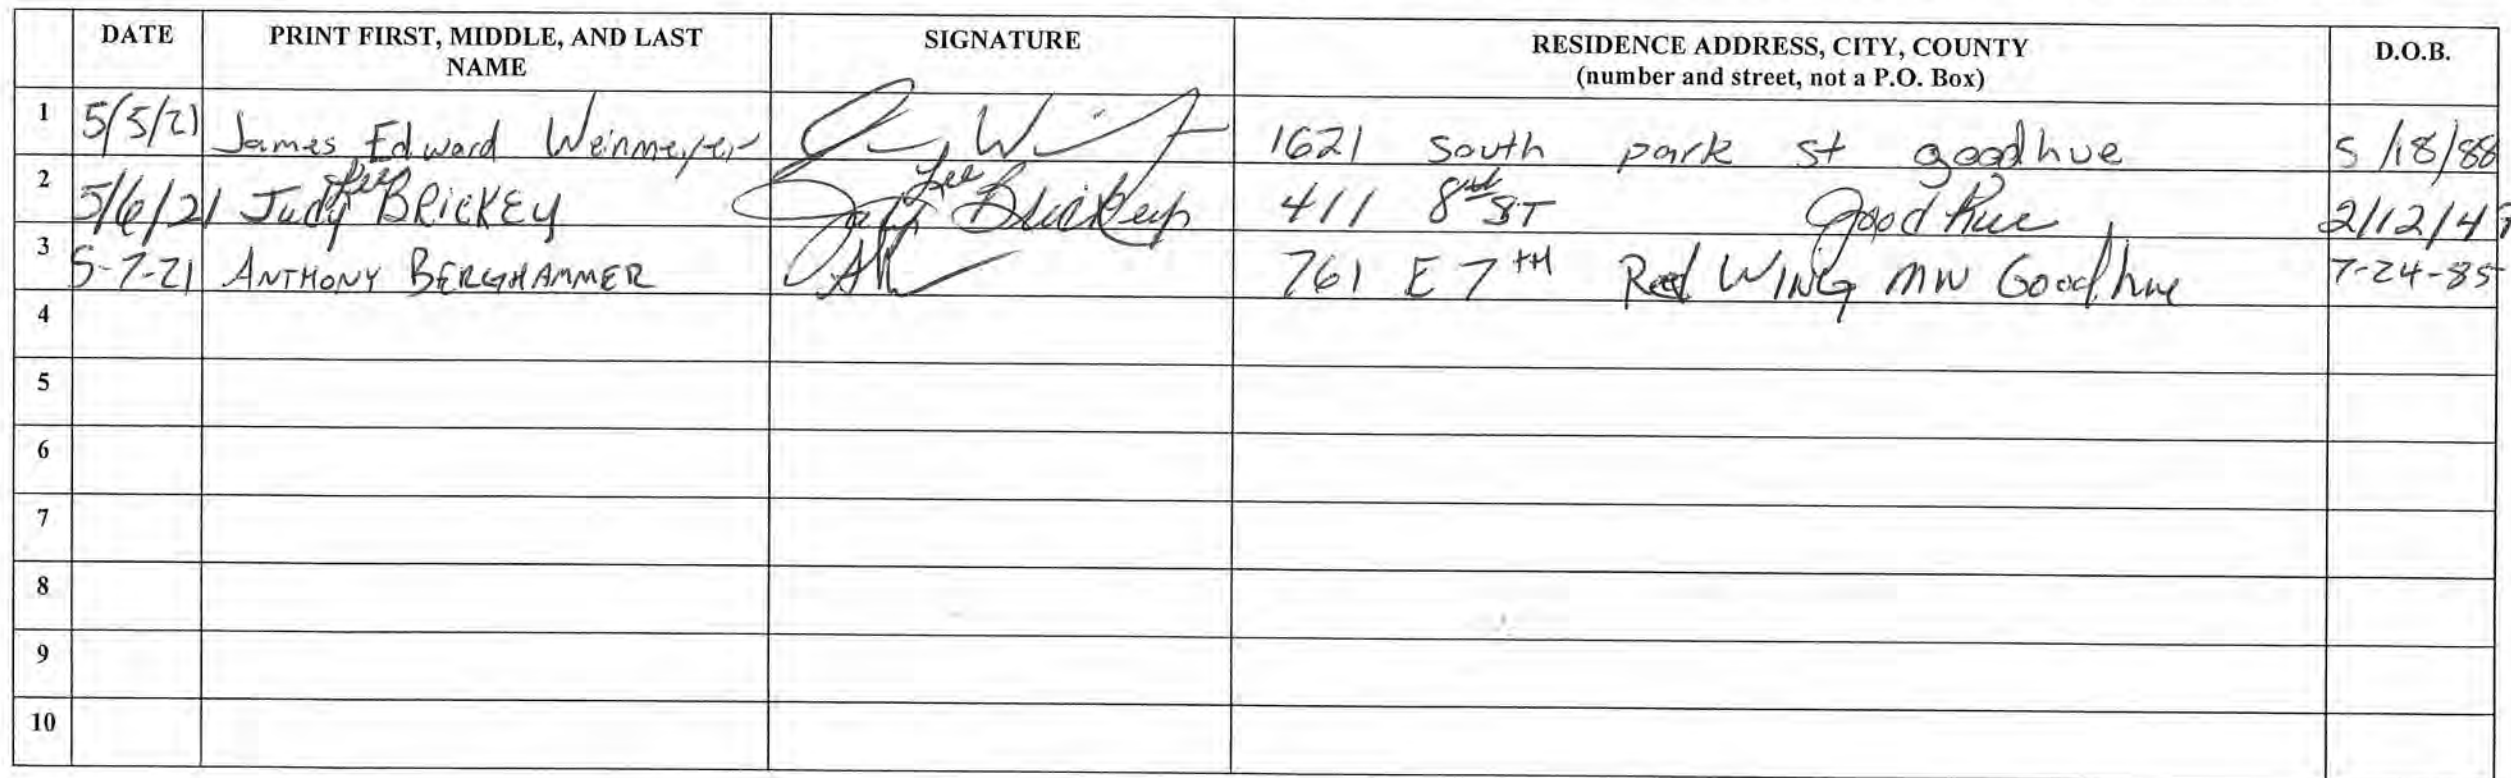 DATE PRINT FIRST, MIDDLE, AND LAST NAME SIGNATURE RESIDENCE ADDRESS, CITY, COUNTY (number and street, not a P.O. Box) D.O.B.
1 5/5/21 James Edward Weinmeyer 1621 south park st goodhue 5/18/88
2 5/6/21 Judy Lee BRICKEY Judy Lee Brickey 411 8th ST Goodhue 2/12/4
3 5-7-21 ANTHONY BERGHAMMER 761 E 7TH Red WING MN Goodhue 7-24-85
4
5
6
7
8
9
10